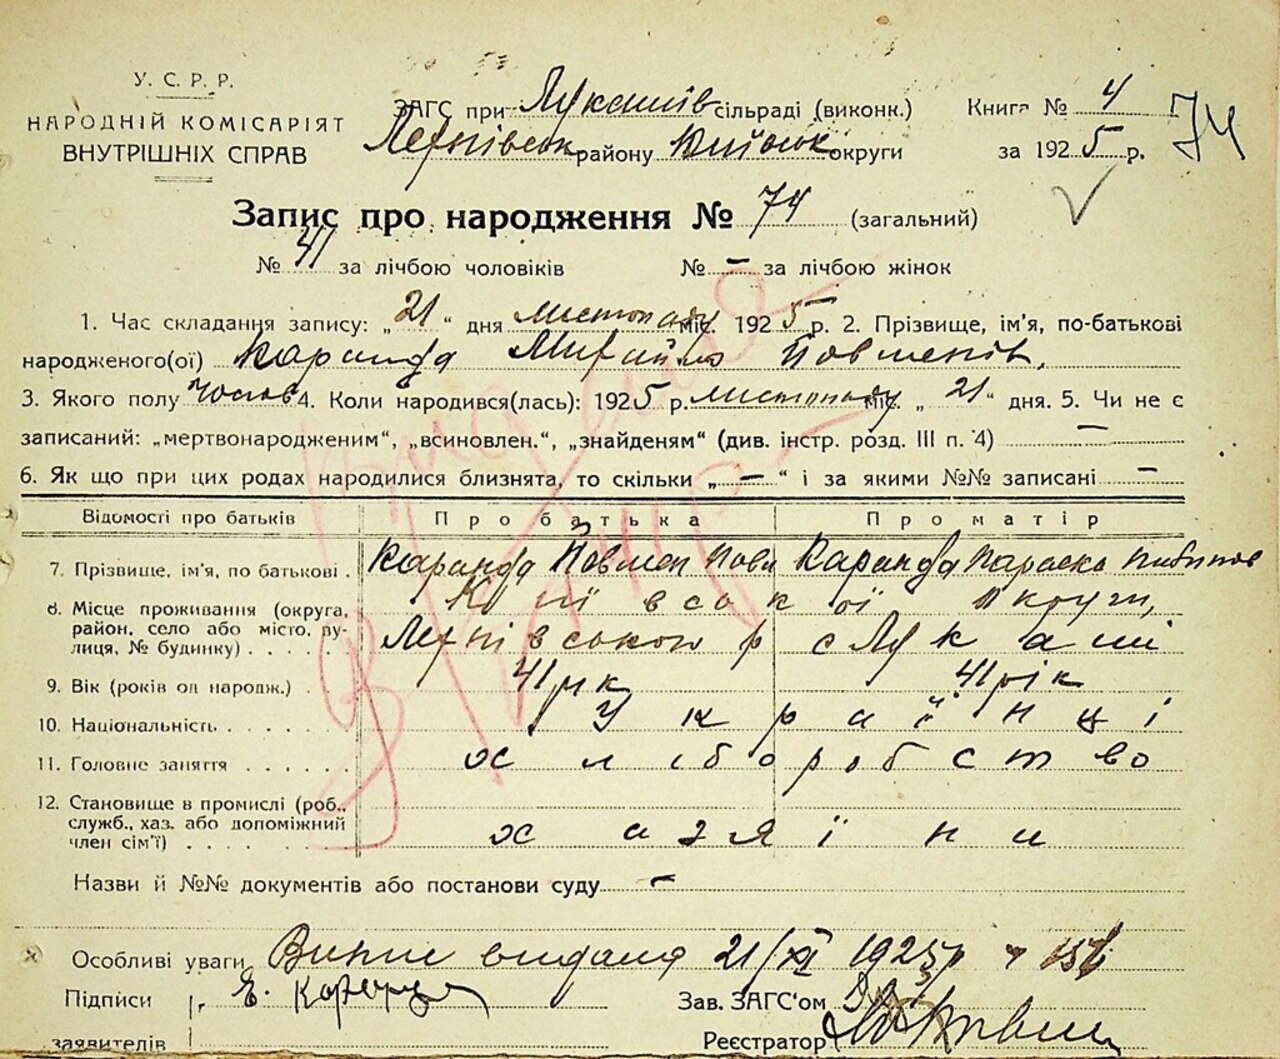 У. С. Р. Р.
НАРОДНІЙ КОМІСАРІЯТ
ВНУТРІШНІХ СПРАВ
ЗАГС при Лукашів сільраді (виконк.)
району округи
Книга № 4
за 1925 р.
74
Запис про народження № 74 (загальний)
№ 41 за лічбою чоловіків № – за лічбою жінок
1. Час складання запису: „21“ дня листопаду міс. 1925 р. 2. Прізвище, ім'я, по-батькові
народженого(ої) Каранда Михайло Йовменів.
3. Якого полу чолов 4. Коли народився(лась): 1925 р. листопаду міс. „21“ дня. 5. Чи не є
записаний: „мертвонародженим“, „всиновлен.“, „знайденям“ (див. інстр. розд. III п. 4) –
6. Як що при цих родах народилися близнята, то скільки „–“ і за якими №№ записані –
Відомості про батьків Про батька Про матір
7. Прізвище, ім'я, по батькові . Каранда Йовмен Каранда Параска
8. Місце проживання (округа, район, село або місто, вулиця, № будинку) . . . . . Київської округи,
р с Лукаші
9. Вік (років од народж.) . . 41 рік 41 рік
10. Національність . . . . . . Українці
11. Головне заняття . . . . . . хліборобство
12. Становище в промислі (роб., служб., хаз. або допоміжний член сім'ї) . . . . . . хазяїни
Назви й №№ документів або постанови суду –
Особливі уваги видана 21/XI 1925 р
Підписи
заявителів
Є. Каранда
Зав. ЗАГС'ом
Реєстратор